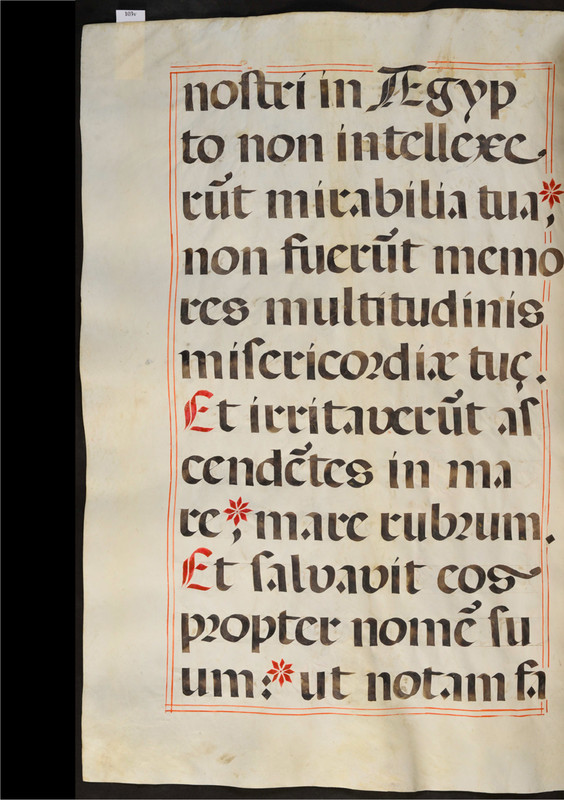 noſtri in Ægyp
to non intellexe
rūt mirabilia tua;*
non fuerūt memo
res multitudinis
miſericordiæ tuę.
Et irritaverūt aſ
cendētes in ma
re;* mare rubrum.
Et ſalvavit eos
propter nomē ſu
um:* ut notam fa